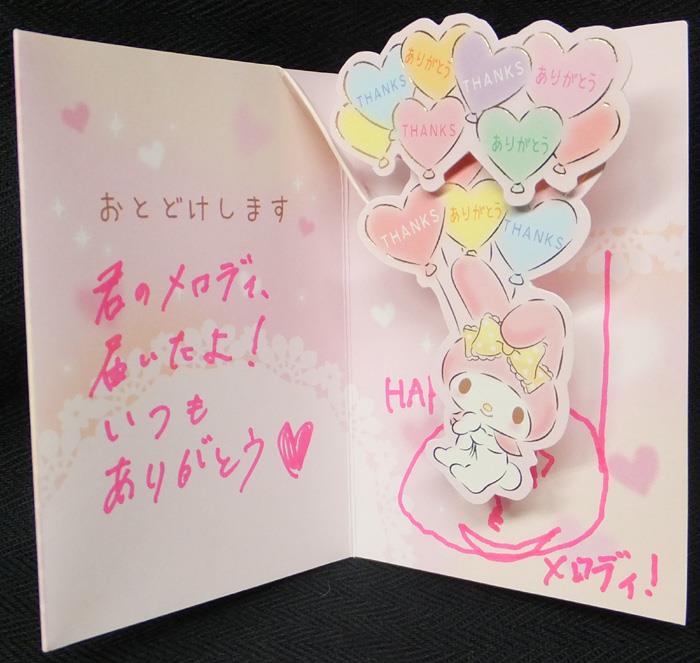 おとどけします
君のメロディ、
届いたよ！
いつも
ありがとう
THANKS
ありがとう
THANKS
ありがとう
THANKS
ありがとう
THANKS
ありがとう
THANKS
メロディ！